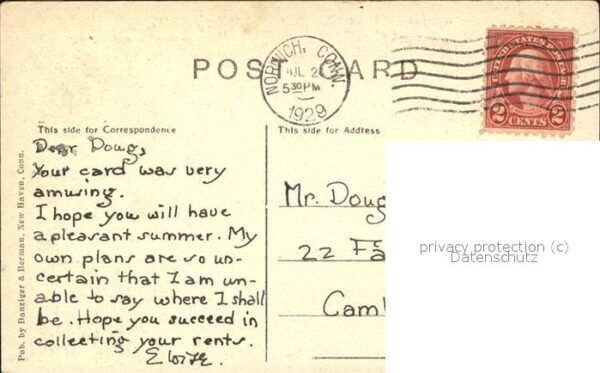 POST CARD
NORWICH, CONN.
JUL 2
5 30 PM
1929
UNITED STATES POSTAGE
2 CENTS 2
This side for Correspondence
This side for Address
Dear Doug,
Your card was very
amusing.
I hope you will have
a pleasant summer. My
own plans are so un-
certain that I am un-
able to say where I shall
be. Hope you succeed in
collecting your rents.
Eloise.
Mr. Doug
22 Fa
Cam
Pub. by Danziger & Berman, New Haven, Conn.
privacy protection (c)
Datenschutz